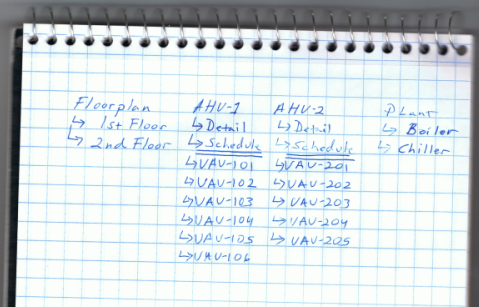 Floorplan
↳ 1st Floor
↳ 2nd Floor
AHU-1
↳ Detail
↳ Schedule
↳ VAV-101
↳ VAV-102
↳ VAV-103
↳ VAV-104
↳ VAV-105
↳ VAV-106
AHU-2
↳ Detail
↳ Schedule
↳ VAV-201
↳ VAV-202
↳ VAV-203
↳ VAV-204
↳ VAV-205
PLant
↳ Boiler
↳ Chiller